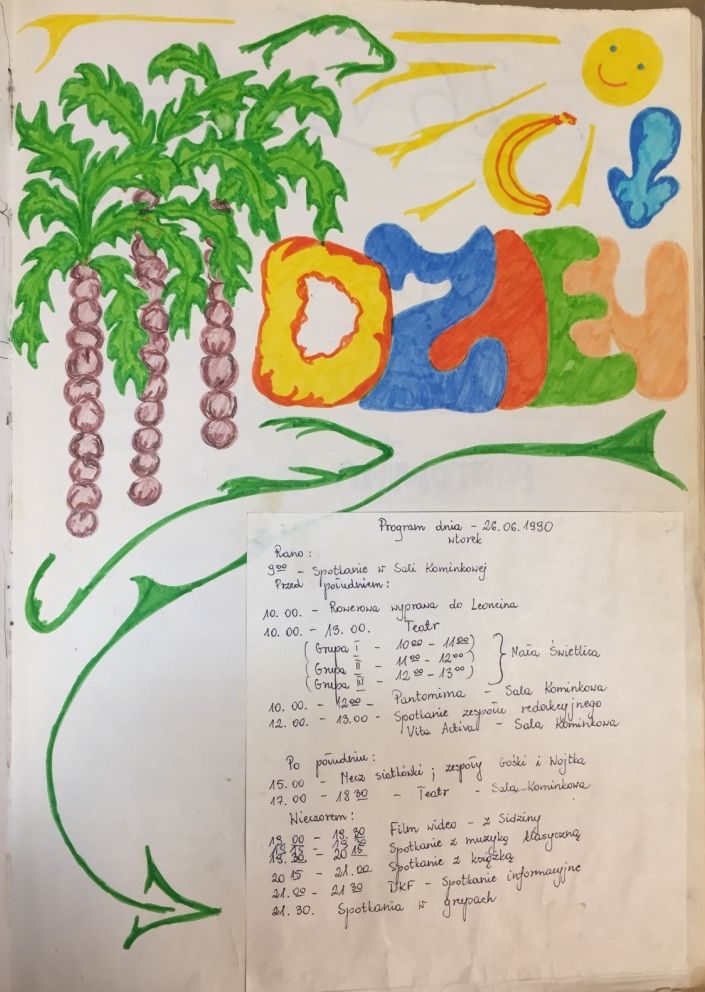 DZIEŃ
Program dnia - 26.06.1990
wtorek
Rano:
9⁰⁰ - Spotkanie w Sali Kominkowej
Przed południem:
10.00. - Rowerowa wyprawa do Leoncina
10.00. - 13.00. Teatr
(Grupa I - 10⁰⁰ - 11⁰⁰)
(Grupa II - 11⁰⁰ - 12⁰⁰) } Mała Świetlica
(Grupa III - 12⁰⁰ - 13⁰⁰)
10.00. - 12⁰⁰ - Pantomima - Sala Kominkowa
12.00. - 13.00 - Spotkanie zespołu redakcyjnego
Vita Activa - Sala Kominkowa
Po południu:
15.00 - Mecz siatkówki ; zespoły Gośki i Wojtka
17.00 - 18³⁰ - Teatr - Sala Kominkowa
Wieczorem:
Film wideo - z Sidziny
Spotkanie z muzyką klasyczną
20¹⁵ - 21.⁰⁰ Spotkanie z książką
21.⁰⁰ - 21³⁰ DKF - Spotkanie informacyjne
21.30. Spotkania w grupach